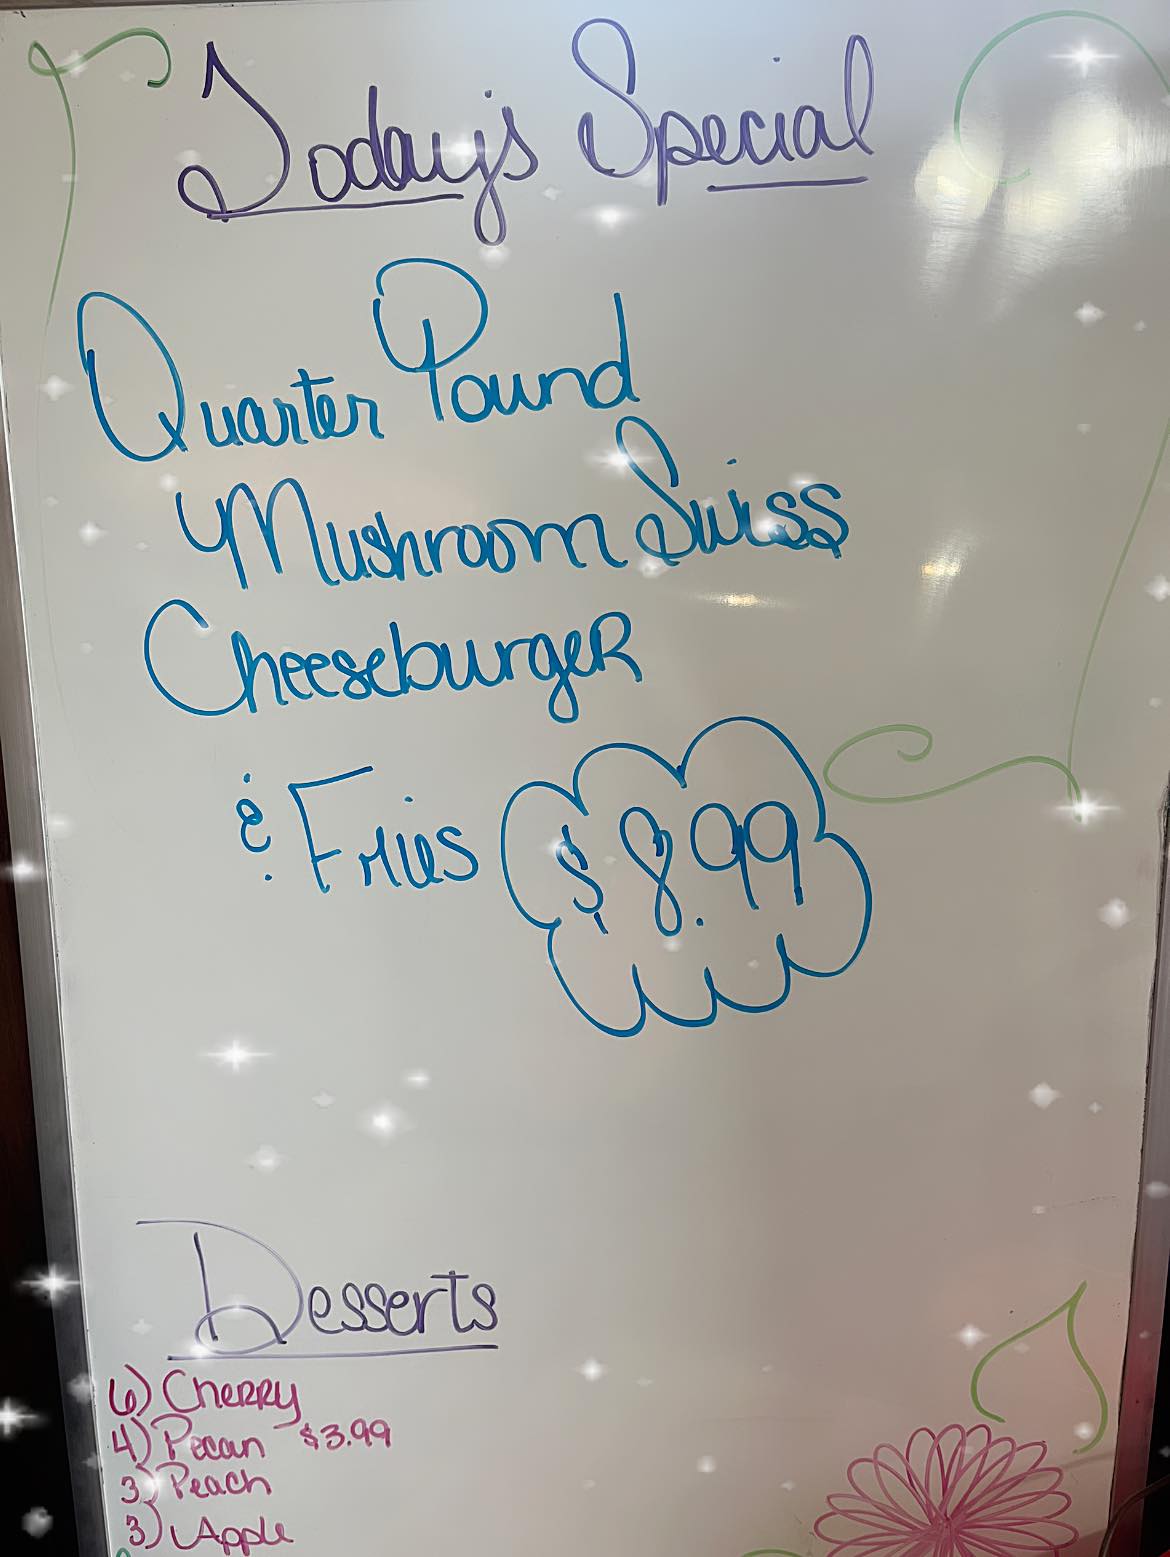 Today's Special
Quarter Pound
Mushroom Swiss
Cheeseburger
& Fries $8.99
Desserts
6) Cherry
4) Pecan $3.99
3) Peach
3) Apple